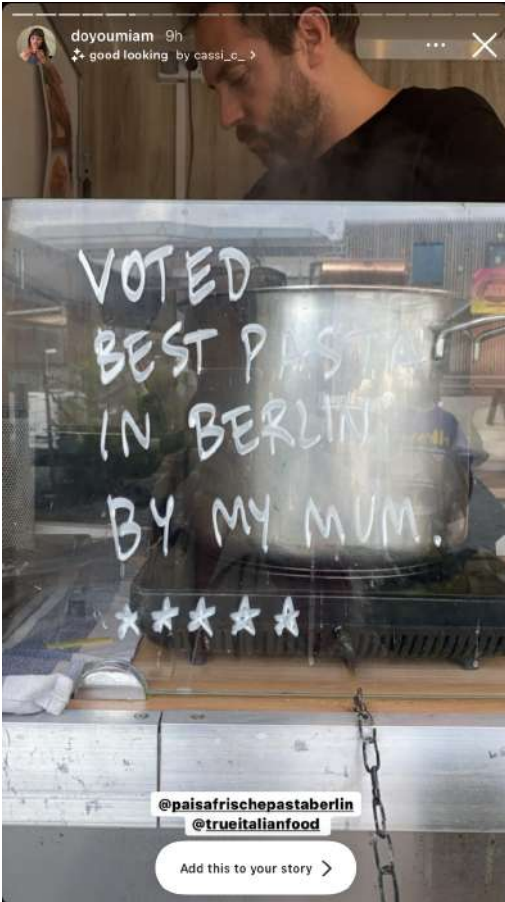 doyoumiam 9h
good looking by cassi_c_ >
VOTED
BEST PASTA
IN BERLIN
BY MY MUM.
@paisafrischepastaberlin
@trueitalianfood
Add this to your story >